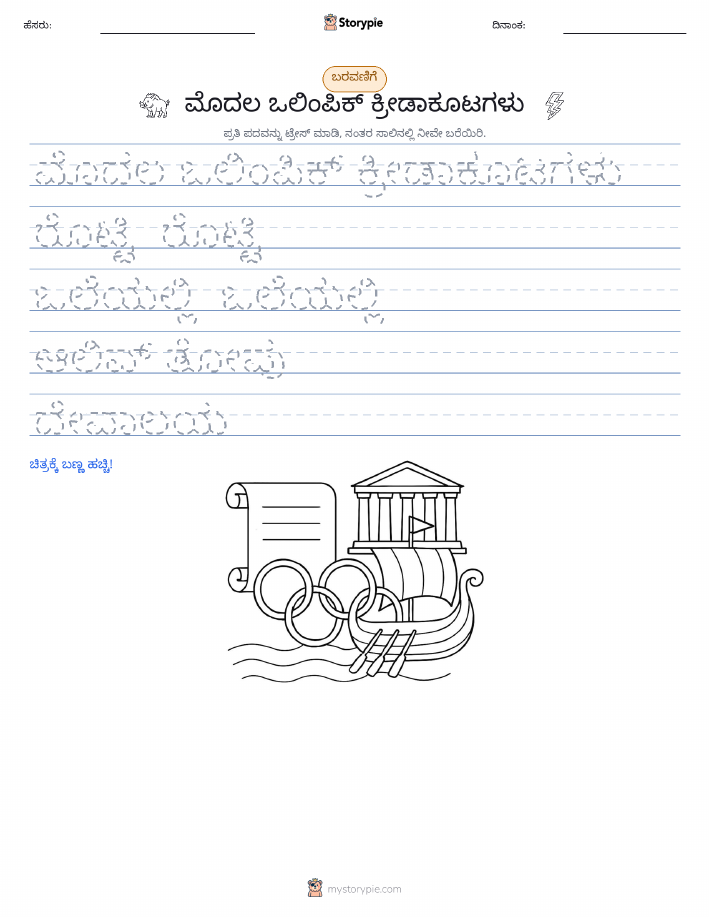 ಹೆಸರು:
Storypie
ದಿನಾಂಕ:
ಬರವಣಿಗೆ
ಮೊದಲ ಒಲಿಂಪಿಕ್ ಕ್ರೀಡಾಕೂಟಗಳು
ಪ್ರತಿ ಪದವನ್ನು ಟ್ರೇಸ್ ಮಾಡಿ, ನಂತರ ಸಾಲಿನಲ್ಲಿ ನೀವೇ ಬರೆಯಿರಿ.
ಮೊದಲ ಒಲಿಂಪಿಕ್ ಕ್ರೀಡಾಕೂಟಗಳು
ರೊಟ್ಟಿ ರೊಟ್ಟಿ
ಒಲೆಯಲ್ಲಿ ಒಲೆಯಲ್ಲಿ
ಆಲಿವ್ ತೋಪು
ದೇವಾಲಯ
ಚಿತ್ರಕ್ಕೆ ಬಣ್ಣ ಹಚ್ಚಿ!
mystorypie.com